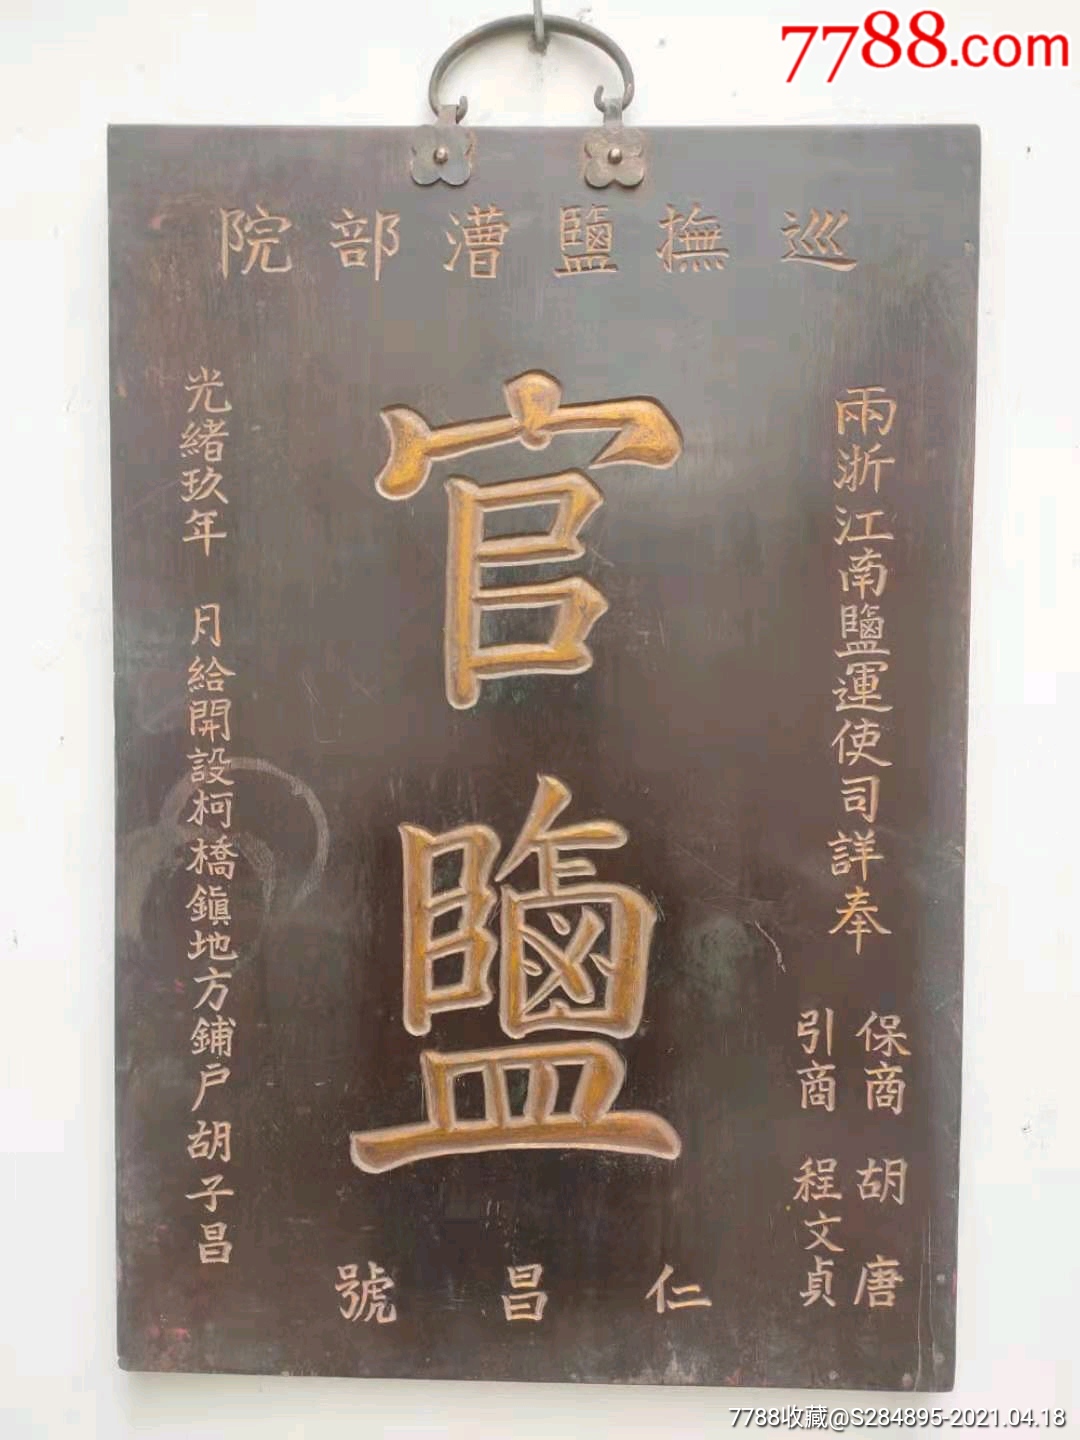 7788.com
巡撫鹽漕部院
兩浙江南鹽運使司詳奉
保商 胡唐
引商 程文貞
官鹽
仁昌號
光緒玖年 月給開設柯橋鎮地方鋪戶胡子昌
7788收藏@S284895-2021.04.18